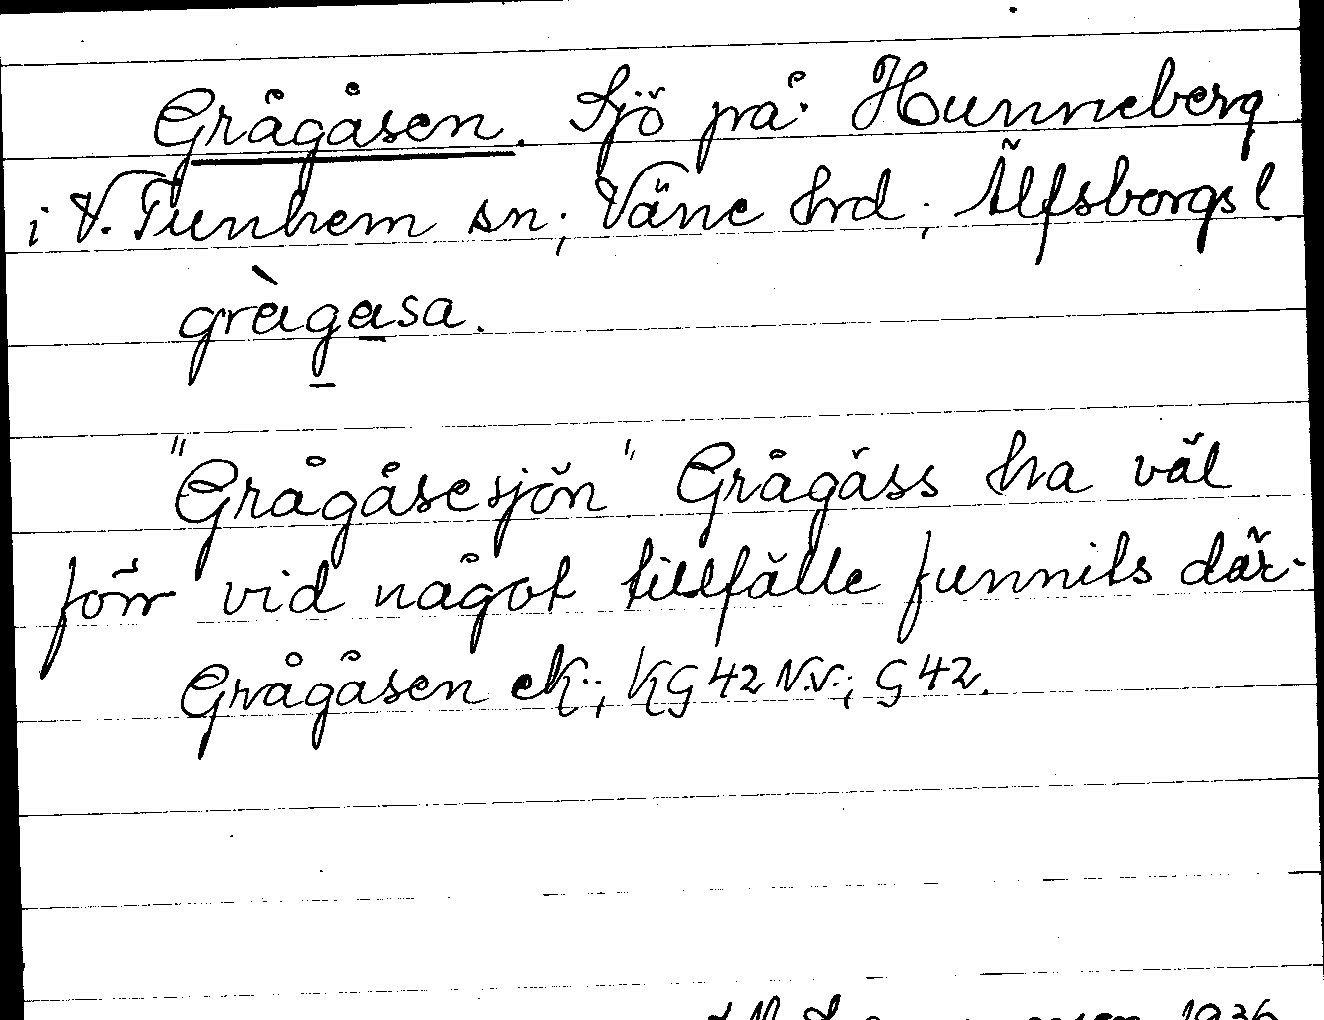 Grågåsen. Sjö på Hunneberg
i V. Tunhem sn; Väne hrd; Älfsborgs l.
gràgasa.
"Grågåsesjön". Grågäss ha väl
förr vid något tillfälle funnits där.
Grågåsen ek.; KG 42 N.V.; G 42.
1936